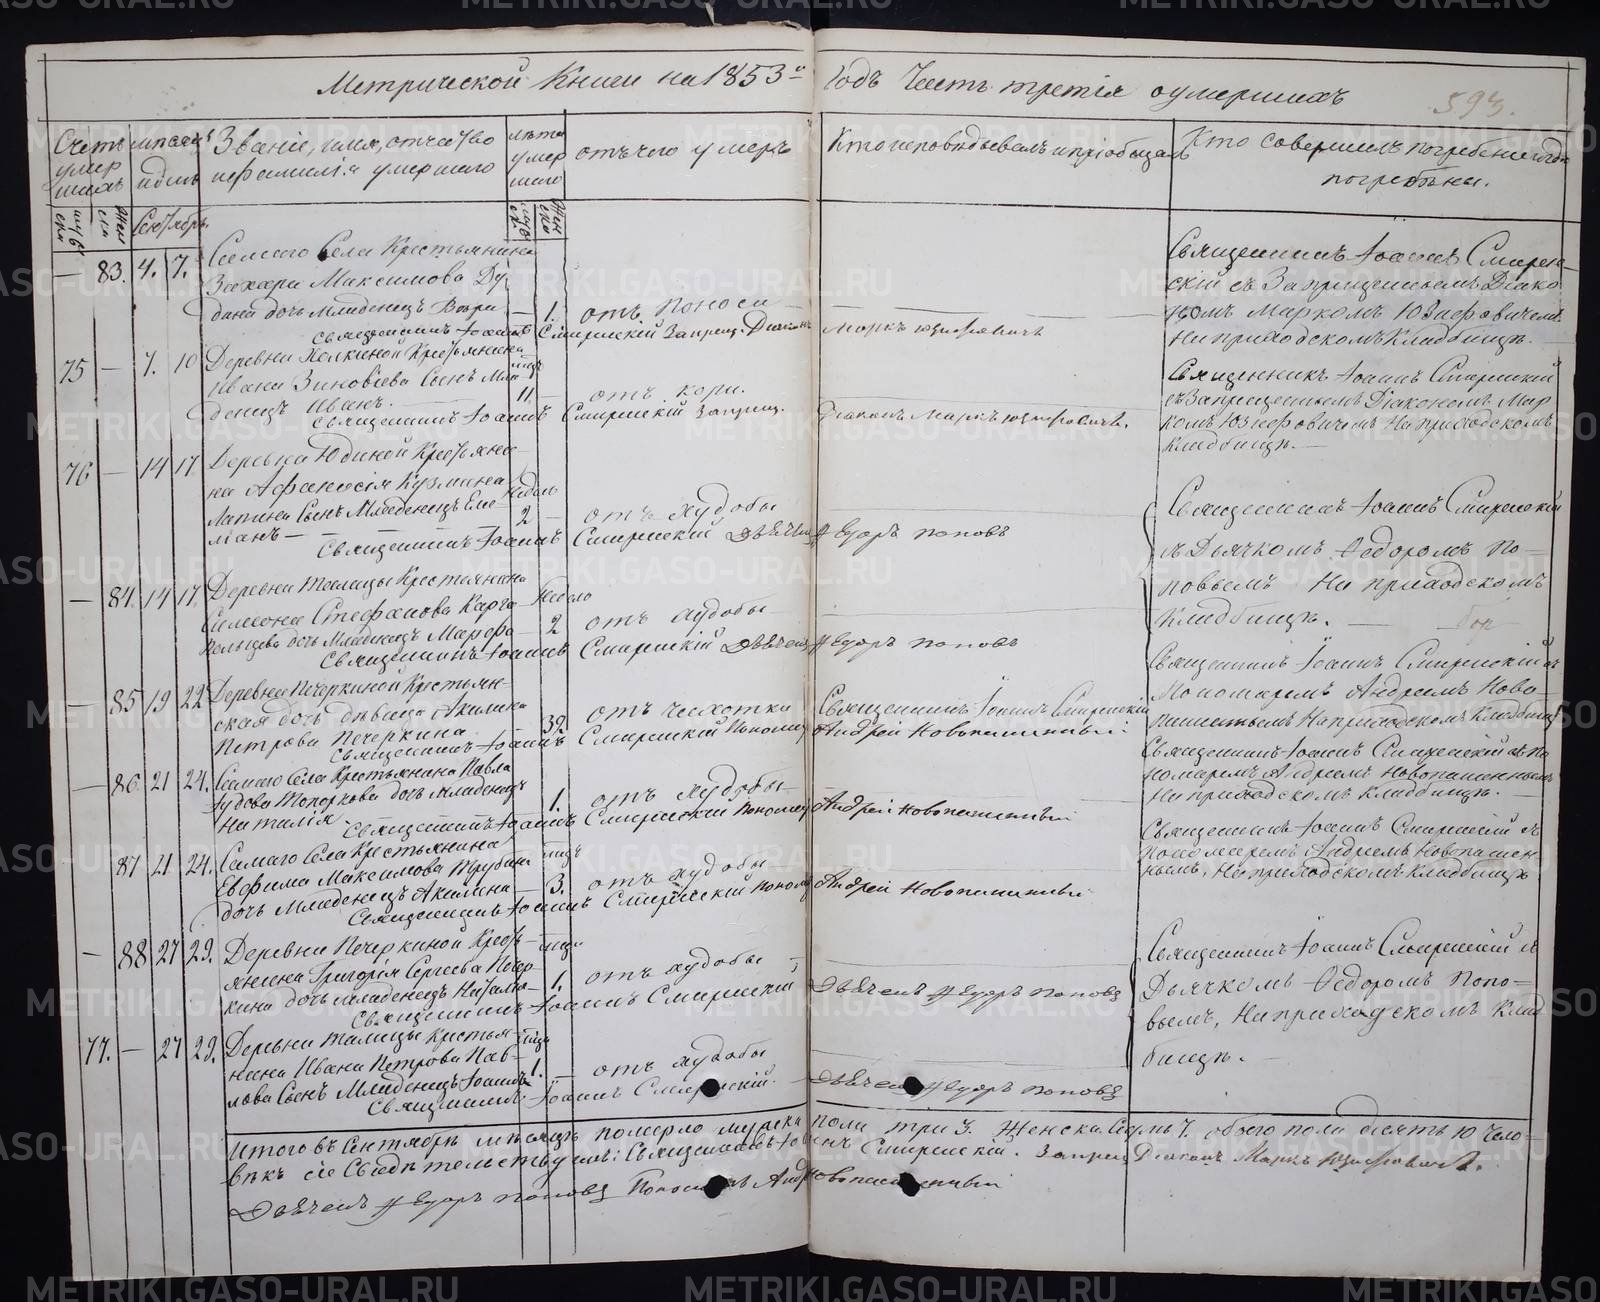 Метрической Книги на 1853й Годъ Часть третія о умершихъ
593.
Счетъ умершихъ
Мѣсяцъ и день
Званіе, имя, отчество и фамилія умершаго
лѣта умершаго
отъ чего умеръ
Кто исповѣдывалъ и пріобщалъ
Кто совершилъ погребеніе и гдѣ погребены.
муж. женска
Сентябрь
муж. женско
— 83. 4. 7. Самаго Села Крестьянина
Захара Максимова
дочь младенецъ
1. отъ поноса
Священникъ Іоаннъ Смиренскій Запрещ. Діаконъ Маркъ Юзефовичъ
Священникъ Іоаннъ Смирен-
скій съ Запрещеннымъ Діако-
номъ Маркомъ Юзефовичемъ
На приходскомъ Кладбищѣ.
75 — 7. 10 Деревни Крестьянина
Ивана Зиновіева Сынъ Мла-
денецъ Иванъ.
11. отъ кори.
Священникъ Іоаннъ Смиренскій Запрещ. Діаконъ Маркъ Юзефовичъ.
Священникъ Іоаннъ Смиренскій
съ Запрещеннымъ Діакономъ Мар
комъ Юзефовичемъ На приходскомъ
Кладбищѣ.—
76 — 14 17 Деревни Юдиной Крестьяни-
на Афанасія Кузмина
Лапина Сынъ Младенецъ Еме-
ліанъ —
недѣль
2 — отъ худобы
Священникъ Іоаннъ Смиренскій Дьячекъ Ѳедоръ Поповъ
Священникъ Іоаннъ Смиренскій
съ Дьячкомъ Ѳедоромъ По-
повымъ На приходскомъ
Кладбищѣ. —
— 84. 14 17. Деревни Талицы Крестьянина
Симеона Стефанова Карго-
польцева дочь Младенецъ Марфа
2 отъ худобы
Священникъ Іоаннъ Смиренскій Дьячекъ Ѳедоръ Поповъ
— 85 19 22 Деревни Печеркиной Крестьян-
ская дочь дѣвица Акилина
Петрова Печеркина
39. отъ чахотки
Священникъ Іоаннъ Смиренскій
Священникъ Іоаннъ Смиренскій Пономарь Андрей Новопашинный.
Священникъ Іоаннъ Смиренскій съ
Пономаремъ Андреемъ Ново-
пашеннымъ На приходскомъ Кладбищѣ
— 86 21 24. Самаго Села Крестьянина Павла
Топоркова дочь младенецъ
Наталія
1. отъ худобы
Священникъ Іоаннъ Смиренскій Пономарь Андрей Новопашинный
Священникъ Іоаннъ Смиренскій съ По
номаремъ Андреемъ Новопашеннымъ
На приходскомъ Кладбищѣ. —
87 21 24. Самаго Села Крестьянина
Евфима Максимова Трубина
дочь Младенецъ Акилина
3. отъ худобы
Священникъ Іоаннъ Смиренскій Пономарь Андрей Новопашинный
Священникъ Іоаннъ Смиренскій съ
Пономаремъ Андреемъ Новопашен-
нымъ, На приходскомъ Кладбищѣ
— 88 27 29. Деревни Печеркиной Кресть-
янина Григорія Сергеева Печер-
кина дочь младенецъ Наталія
1. отъ худобы
Священникъ Іоаннъ Смиренскій Дьячекъ Ѳедоръ Поповъ
Священникъ Іоаннъ Смиренскій съ
Дьячкомъ Ѳедоромъ Попо-
вымъ, На приходскомъ Клад-
бищѣ. —
77. — 27 29. Деревни Талицы Крестья-
нина Ивана Петрова Пав-
лова Сынъ Младенецъ Іоаннъ
1. — отъ худобы
Священникъ Іоаннъ Смиренскій. Дьячекъ Ѳедоръ Поповъ
Итого въ Сентябрѣ мѣсяцѣ померло мужска пола три 3. Женска Семь 7. обоего пола десять 10 Чело-
вѣкъ сіе Свидѣтельствуемъ: Священникъ Іоаннъ Смиренскій. Запрещ. Діаконъ Маркъ Юзефовичъ.
Дьячекъ Ѳедоръ Поповъ Пономарь Андрей Новопашинный
METRIKI.GASO-URAL.RU